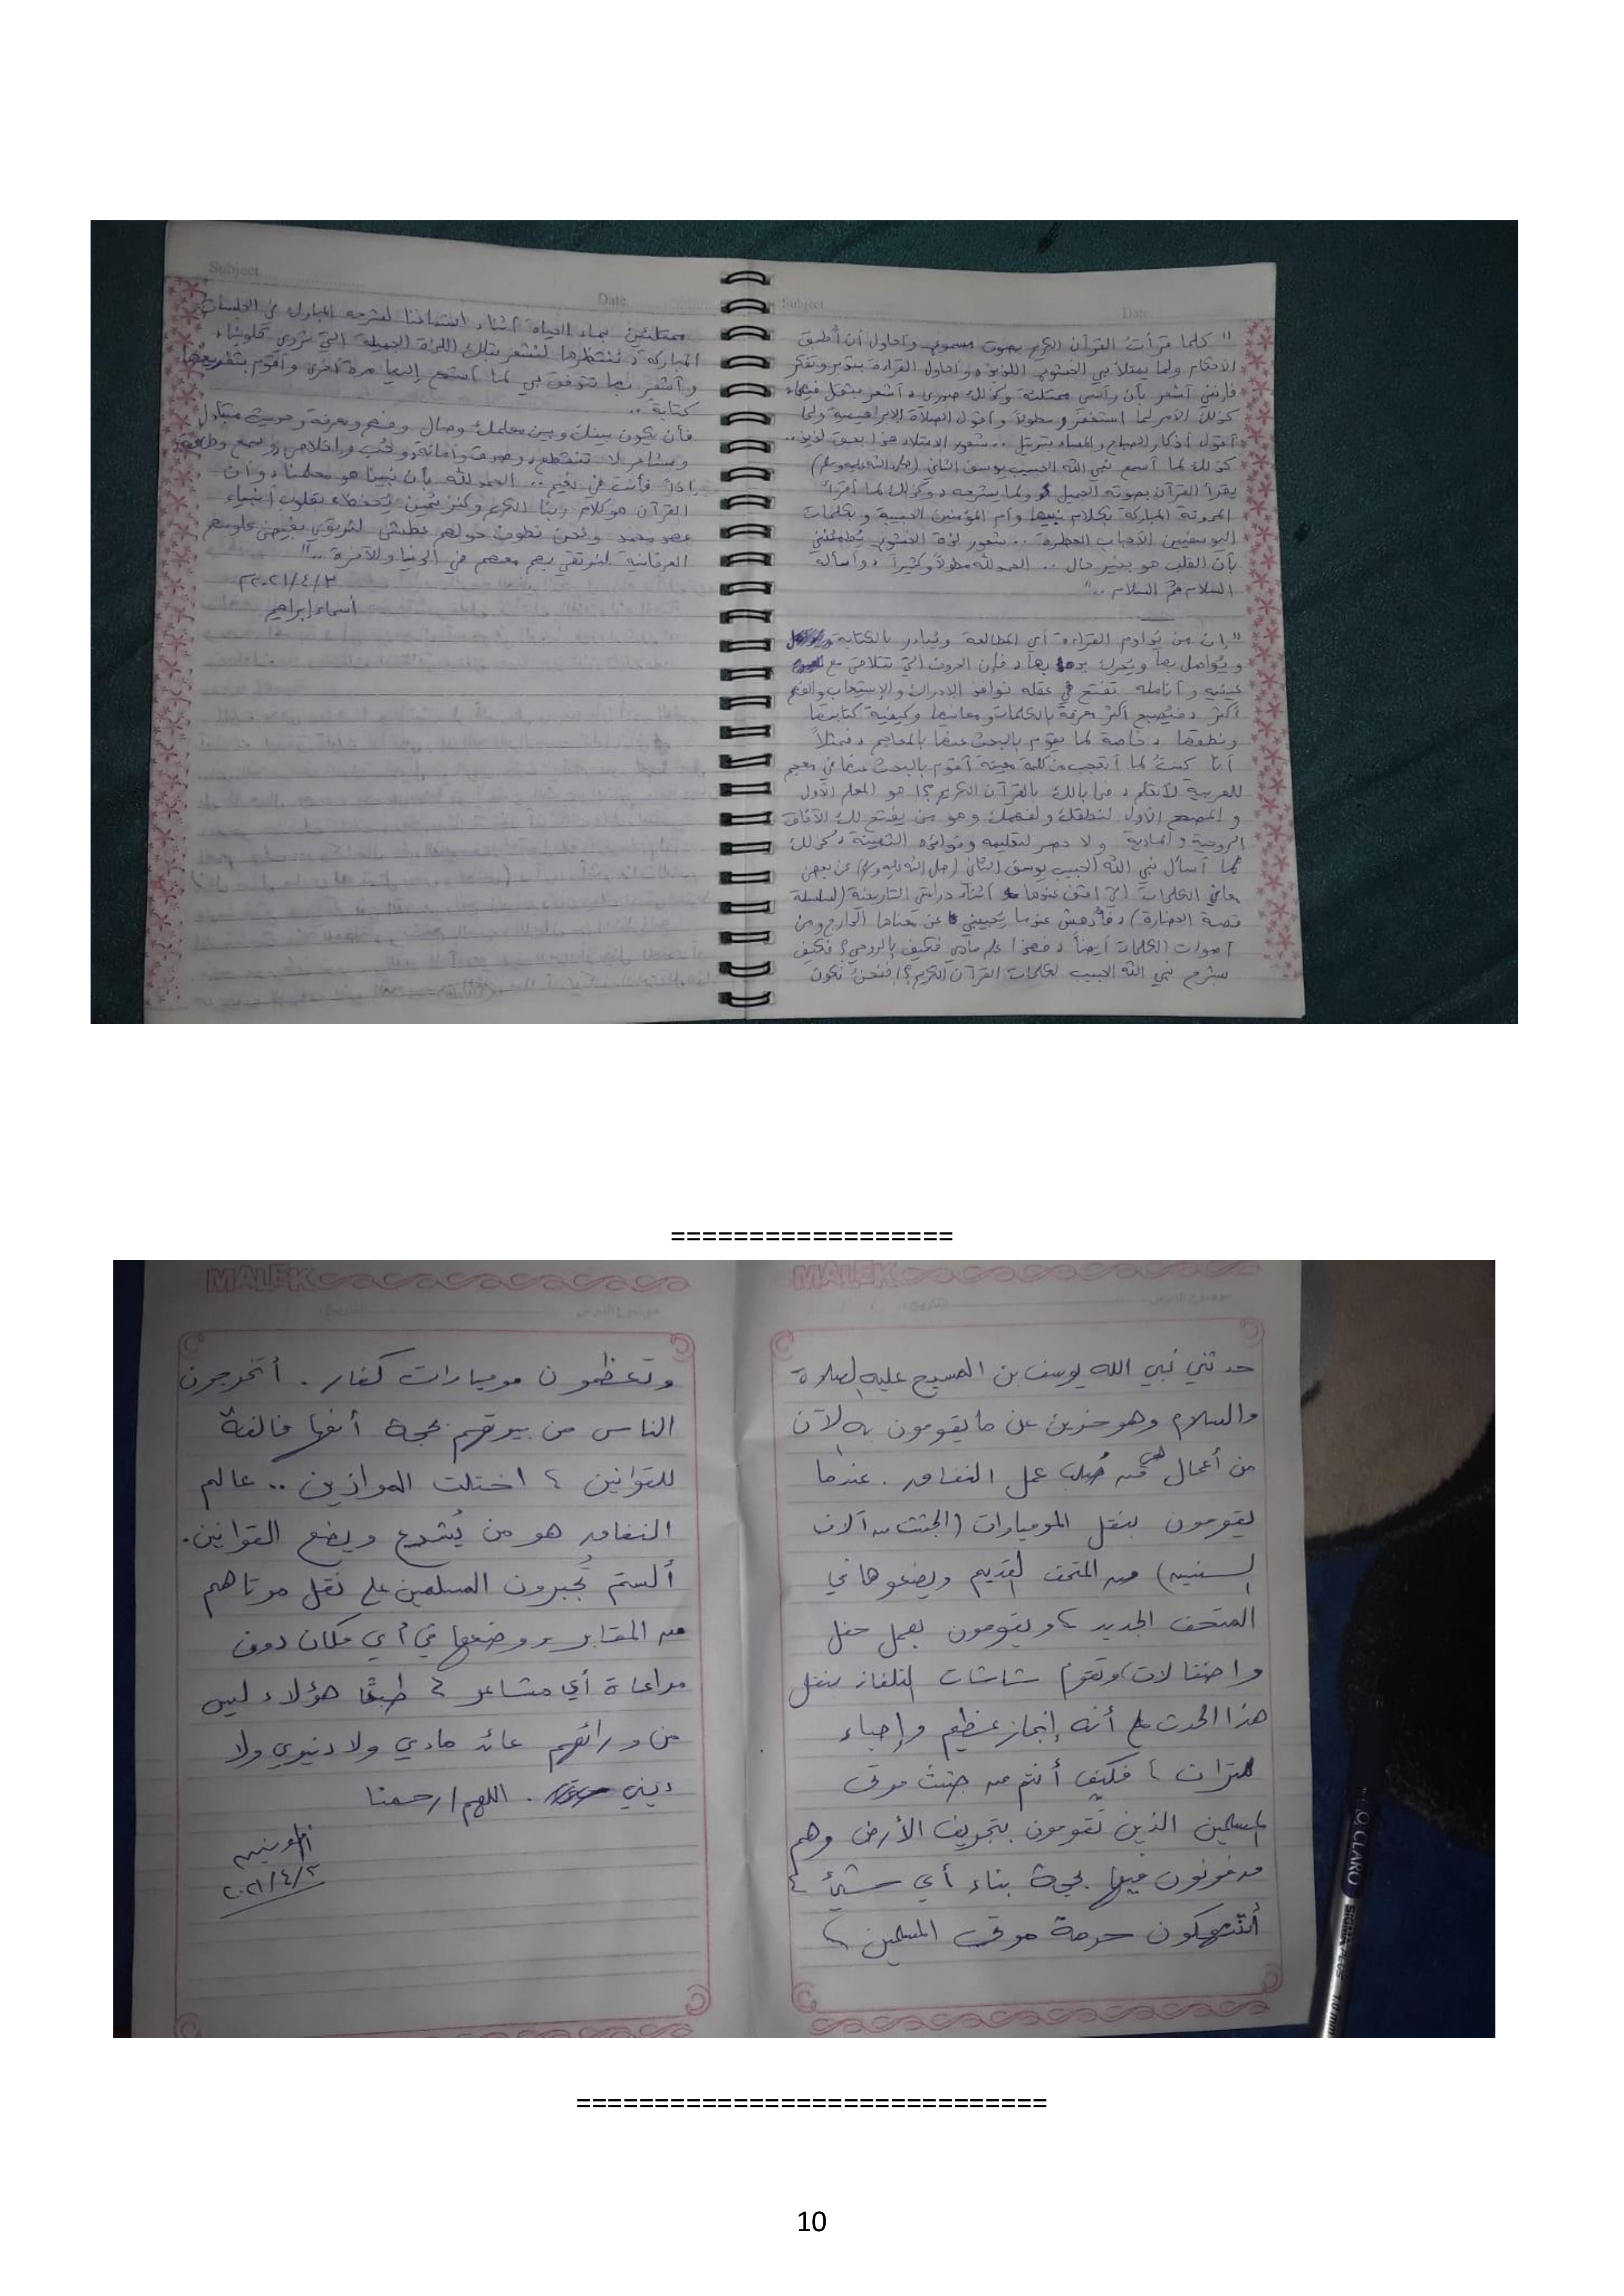 Subject
Date
" كلما قرأت القرآن الكريم بصوت مسموع وأحاول أن أُطبق
الأحكام ولما يمتلأ بي الخشوع اللذيذ، وأحاول القراءة بتدبر وتفكر
فإنني أشعر بأن رأسي ممتلئة وكذلك صدري، أشعر بثقل فيهما
كذلك الأمر لما أستغفر مطولاً وأقول الصلاة الإبراهيمية ولما
أقول أذكار الصباح والمساء بترتيل .. شعور الامتلاء هذا بعمق لذيذ ..
كذلك لما أسمع نبي الله الحبيب يوسف الثاني (صلى الله عليه وسلم)
يقرأ القرآن بصوته الجميل ولما يشرحه، وكذلك لما أقرأ
المدونة المباركة بكلام نبيها وأم المؤمنين الحبيبة وبكلمات
اليوسفيين الأحباب العطرة .. شعور لذة الخشوع يُطمئنني
بأن القلب هو بخير حال .. الحمد لله مطولاً وكثيراً، وأسأله
السلام ثم السلام .."
"إن من يُداوم القراءة أي المطالعة ويُبادر بالكتابة
ويُواصل بها ويُحرك بها، فإن الحروف التي تتلاقى مع
عينيه وأنامله تفتح في عقله نوافذ الإدراك والإستيعاب والفهم
أكثر، فيُصبح أكثر معرفة بالكلمات ومعانيها وكيفية كتابتها
ونطقها، خاصة لما يقوم بالبحث عنها بالمعاجم، فمثلاً
أنا كنتُ لما أتعجب من كلمة معينة أقوم بالبحث عنها في معجم
للعربية لأتعلم، فما بالك بالقرآن الكريم؟! هو المعلم الأول
و المصحح الأول لنطقك ولفهمك وهو من يفتح لك الآفاق
الروحية والمادية ولا حصر لتعليمه وفوائده الثمينة، كذلك
لما أسأل نبي الله الحبيب يوسف الثاني (صلى الله عليه وسلم) عن بعض
معاني الكلمات التي أقف عندها أثناء دراستي التاريخية (لسلسلة
قصة الحضارة)، فأُدهش عندما يُجيبني عن معناها الدارج ومن
أصوات الكلمات أيضاً، فهذا علم مادي فكيف بالروحي؟ فكيف
بشرح نبي الله الحبيب لكلمات القرآن الكريم؟! فنحن نكون
Subject
Date
ممتلئين بماء الحياة أثناء استماعنا لشرحه المبارك في الجلسات
المباركة، ننتظرها لنشعر بتلك اللذة الجميلة التي تروي قلوبنا،
وأشعر بها تتدفق بي لما أستمع إليها مرة أخرى وأقوم بتفريغها
كتابة ..
فأن يكون بينك وبين معلمك وصال وفهم ومعرفة وحديث متبادل
ومشاعر لا تنقطع، وصدق وأمانة، وحُب وإخلاص، وسمع وطاعة
إذاً فأنت في نعيم .. الحمد لله بأن نبينا هو معلمنا، وأن
القرآن هو كلام ربنا الكريم وكنز ثمين يُحفظ بقلوب أنبياء
عهد محمد ونحن نطوف حولهم عطشى لنرتوي بفيوض علومهم
العرفانية لنرتقي بهم معهم في الدنيا والآخرة .."
٢٠٢١/٤/٣م
أسماء إبراهيم
==================
MALEK
حدثني نبي الله يوسف بن المسيح عليه الصلاة
والسلام وهو حزين عن ما يقومون به الآن
من أعمال هي من صُلب عمل النفاق. عندما
يقومون بنقل المومياوات (الجثث من آلاف
السنين) من المتحف القديم ويضعوها في
المتحف الجديد، ويقومون بعمل حفل
واحتفالات، وتقوم شاشات التلفاز بنقل
هذا الحدث على أنه إنجاز عظيم وإحياء
للتراث، فكيف أنتم من جثث موتى
المسلمين الذين تقومون بتجريف الأرض وهم
مدفونون فيها بحجة بناء أي شيئ؟
أتنتهكون حرمة موتى المسلمين،
MALEK
وتعظمون مومياوات كفار. أتخرجون
الناس من بيوتهم بحجة أنها مخالفة
للقوانين؟ اختلت الموازين .. عالم
النفاق هو من يُشرع ويضع القوانين.
ألستم تُجبرون المسلمين على نقل موتاهم
من المقابر ووضعها في أي مكان دون
مراعاة أي مشاعر؟ طبعًا هؤلاء ليس
من ورائهم عائد مادي ولا دنيوي ولا
ديني. اللهم ارحمنا
٢٠٢١/٤/٣
CLARO
=============================
10